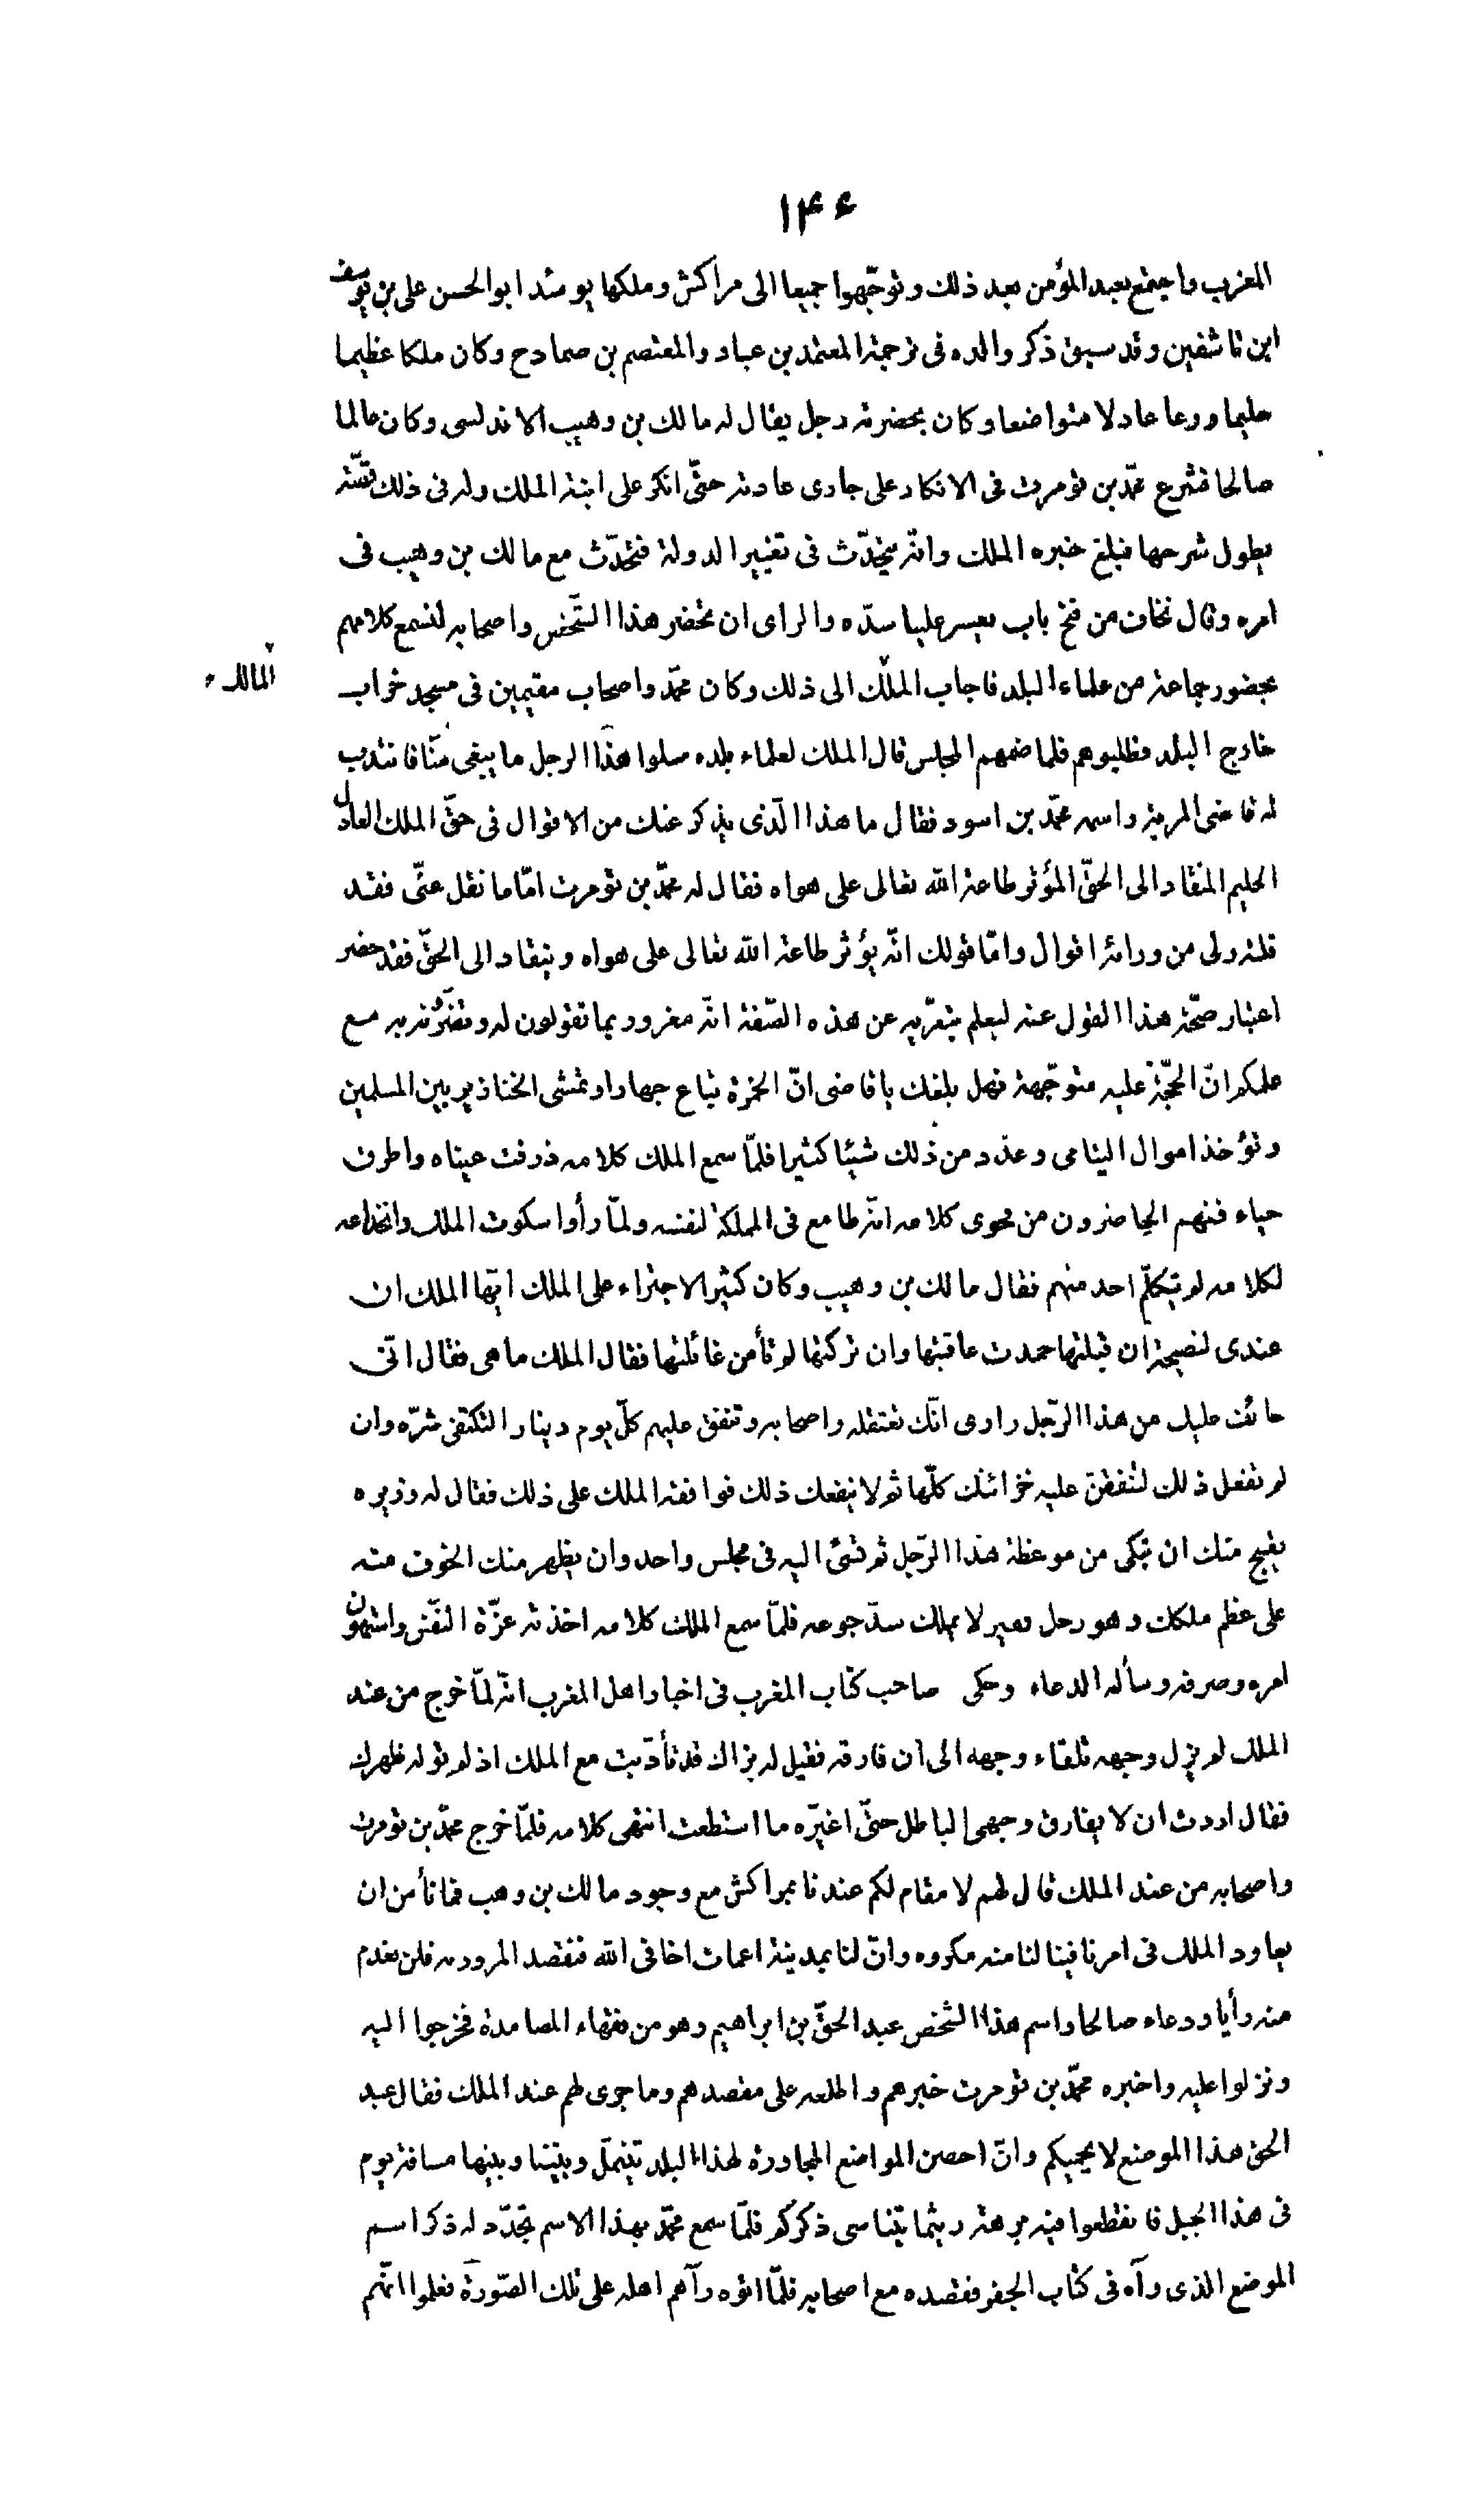 ۱۴۶
المغرب واجتمع بعبد المؤمن بعد ذلك وتوجّهوا جميعا الى مراكش وملكها يومئذ ابو الحسن على بن يوسف
ابن تاشفين وقد سبق ذكر والده فى ترجمة المعتمد بن عباد والمعتصم بن صمادح وكان ملكا عظيما
حليما ورعا عادلا متواضعا وكان بحضرته رجل يقال له مالك بن وهيب الاندلسى وكان عالما
صالحا فشرع محمّد بن تومرت فى الانكار على جارى عادته حتّى انكر على ابنة الملك وله فى ذلك قصّة
يطول شرحها فبلغ خبره الملك وانّه يتحدّث فى تغيير الدولة فتحدّث مع مالك بن وهيب فى
امره وقال نخاف من فتح باب يعسر علينا سدّه والراى ان تحضر هذا الشّخص واصحابه لنسمع كلامهم
بحضور جماعة من علماء البلد فاجاب الملك الى ذلك وكان محمّد واصحابه مقيمين فى مسجد خراب
المالك
خارج البلد فطلبوهم فلما ضمهم المجلس قال الملك لعلماء بلده سلوا هذا الرجل ما يبغى منّا فانتدب
له قاضى المرية واسمه محمّد بن اسود فقال ما هذا الّذى يذكر عنك من الاقوال فى حقّ الملك العادل
الحليم المنقاد الى الحقّ المؤثر طاعة الله تعالى على هواه فقال له محمّد بن تومرت امّا ما نقل عنّى فقد
قلته ولى من ورائه اقوال وامّا قولك انّه يؤثر طاعة الله تعالى على هواه وينقاد الى الحقّ فقد حضر
اعتبار صحّة هذا القول عنه ليعلم بتعرّيه عن هذه الصّفة انّه مغرور بما تقولون له وتضرّونه به مع
علمكم انّ الحجّة عليه متوجّهة فهل بلغك يا قاضى انّ الخمرة تباع جهارا وتمشى الخنازير بين المسلمين
وتؤخذ اموال اليتامى وعدّد من ذلك شيئا كثيرا فلمّا سمع الملك كلامه ذرفت عيناه واطرق
حياء ففهم الحاضرون من فحوى كلامه انّه طامع فى المملكة لنفسه ولمّا رأوا سكوت الملك وانخداعه
لكلامه لم يتكلّم احد منهم فقال مالك بن وهيب وكان كثير الاجتراء على الملك ايّها الملك ان
عندى لنصيحة ان قبلتها حمدت عاقبتها وان تركتها لم تأمن غائلتها فقال الملك ما هى فقال انّى
خائف عليك من هذا الرّجل وارى انّك تعتقله واصحابه وتنفق عليهم كلّ يوم دينارا لتكتفى شرّه وان
لم تفعل ذلك لتنفقنّ عليه خزائنك كلّها ثم لا ينفعك ذلك فوافقه الملك على ذلك فقال له وزيره
يقبح منك ان تبكى من موعظة هذا الرّجل ثم تسئ اليه فى مجلس واحد وان يظهر منك الخوف منه
على عظم ملكك وهو رجل فقير لا يملك سدّ جوعه فلمّا سمع الملك كلامه اخذته عزّة النّفس واستهون
امره وصرفه وسأله الدعاء وحكى صاحب كتاب المغرب فى اخبار اهل المغرب انّه لمّا خرج من عند
الملك لم يزل وجهه تلقاء وجهه الى ان فارقه فقيل له نراك قد تأدّبت مع الملك اذ لم توله ظهرك
فقال اردت ان لا يفارق وجهى الباطل حتّى اغيّره ما استطعت انتهى كلامه فلمّا خرج محمّد بن تومرت
واصحابه من عند الملك قال لهم لا مقام لكم عندنا بمراكش مع وجود مالك بن وهيب فما نأمن ان
يعاود الملك فى امرنا فينالنا منه مكروه وانّ لنا بمدينة اغمات اخا فى الله فنقصد المرور به فلن نعدم
منه رأيا ودعاء صالحا واسم هذا الشخص عبد الحقّ بن ابراهيم وهو من فقهاء المصامدة فخرجوا اليه
ونزلوا عليه واخبره محمّد بن تومرت خبرهم واطلعه على مقصدهم وما جرى لهم عند الملك فقال عبد
الحق هذا الموضع لا يحميكم وانّ احصن المواضع المجاورة لهذا البلد تينملّ وبيننا وبينها مسافة يوم
فى هذا الجبل فانقطعوا فيه برهة ريثما يتناسى ذكركم فلمّا سمع محمّد بهذا الاسم تجدّد له ذكر اسم
الموضع الذى رآه فى كتاب الجفر فقصده مع اصحابه فلمّا اتوه رآهم اهله على تلك الصّورة فعلموا انّهم